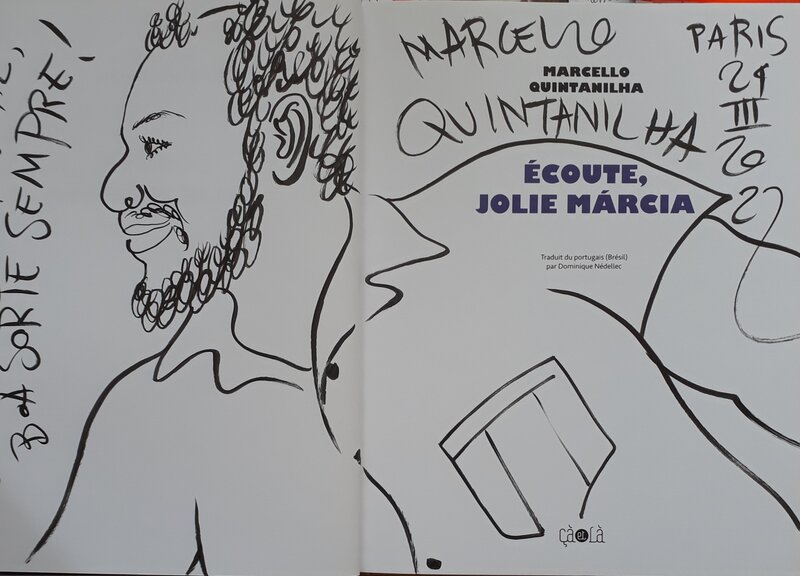 BOA SORTE SEMPRE!
MARCELLO
QUINTANILHA
PARIS
III
20
MARCELLO
QUINTANILHA
ÉCOUTE,
JOLIE MÁRCIA
Traduit du portugais (Brésil)
par Dominique Nédellec
çà et Là